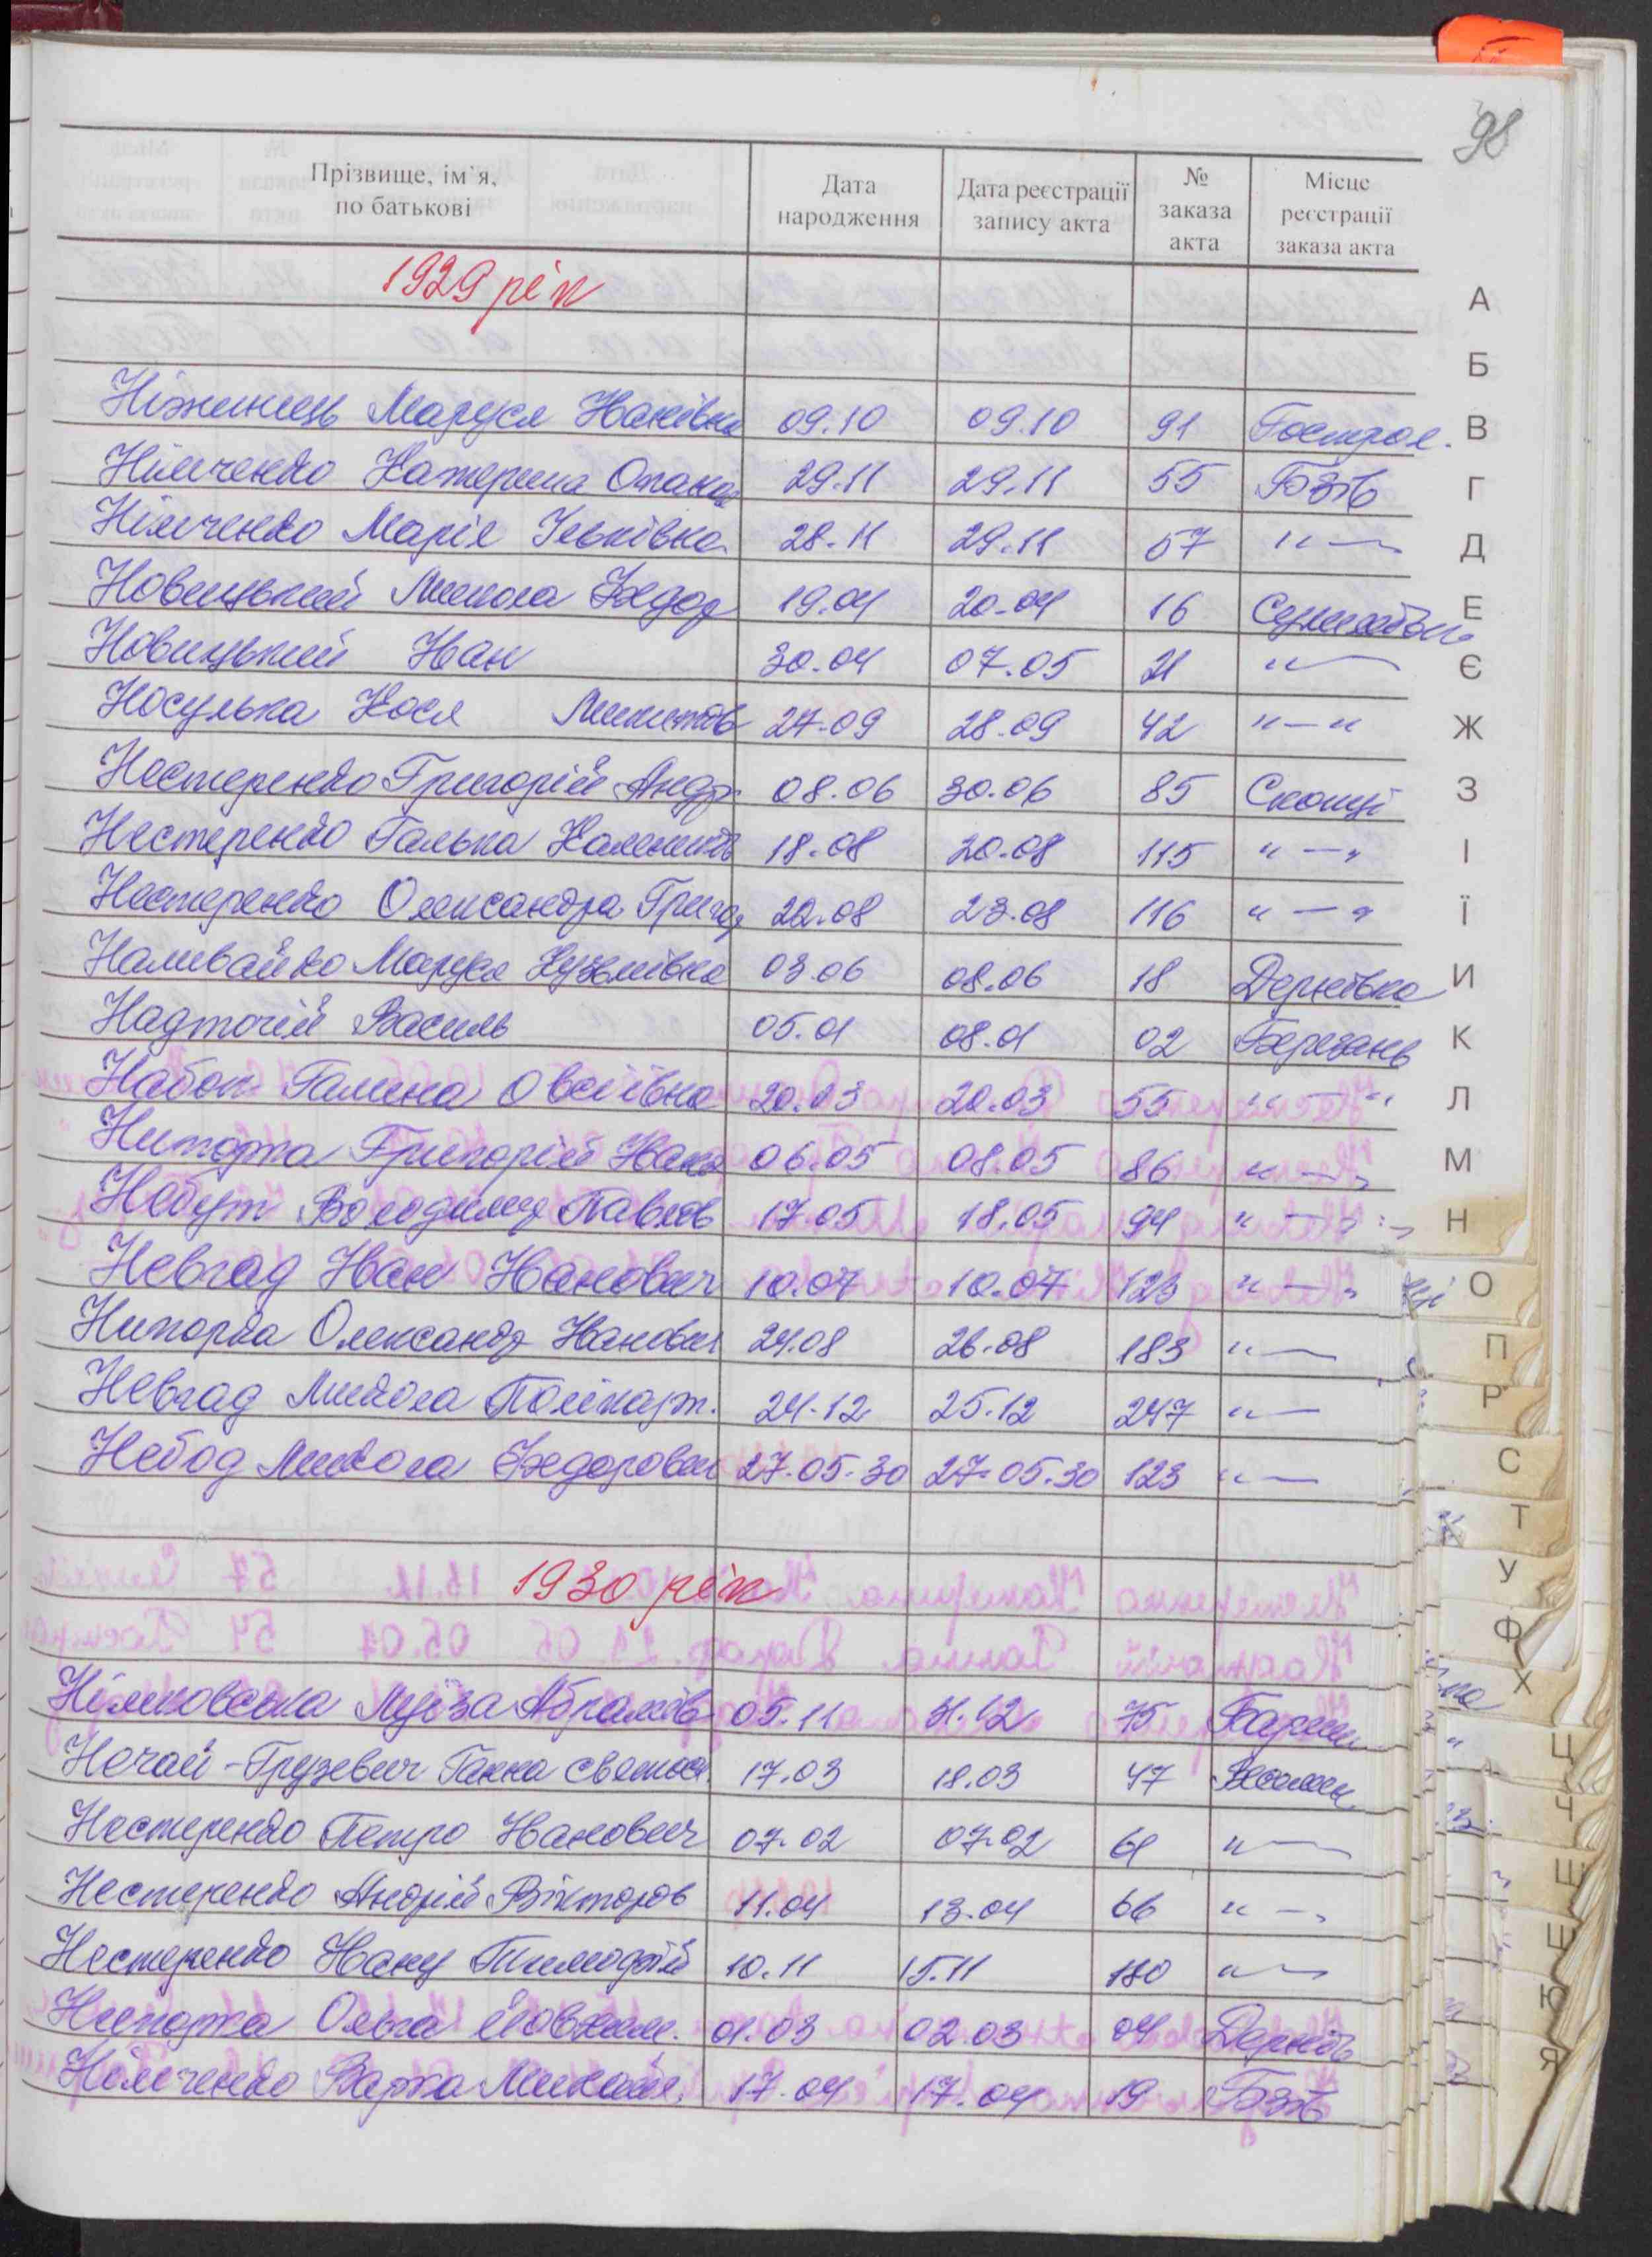 98
Прізвище, ім'я, по батькові | Дата народження | Дата реєстрації запису акта | № заказа акта | Місце реєстрації заказа акта
1929 рік
Ніжинець Маруся Іванівна 09.10 09.10 91 Гострол.
Німченко Катерина Опанас 29.11 29.11 55 Бзів
Німченко Марія Ільківна 28.11 29.11 57 "—
Новицький Микола Федор 19.04 20.04 16
Новицький Іван 30.04 07.05 21 "—
Носулька Кося Микитов 27.09 28.09 42 "—"
Нестеренко Григорій Андр. 08.06 30.06 85 Скопці
Нестеренко Галька 18.08 20.08 115 "—"
Нестеренко Олександра Григор 22.08 23.08 116 "—"
Наливайко Маруся Кузьмівна 03.06 08.06 18 Дернівка
Надточій Василь 05.01 08.01 02 Березань
Набок Галина Овсіївна 20.03 20.03 55 "—"
Григорій Іванов 06.05 08.05 86 "—"
Небут Володимир Павлов 17.05 18.05 94 "—"
Невгад Іван Іванович 10.07 10.07 123 "—"
Олександр Іванович 24.08 26.08 183 "—
Невгад Микола Полікарп. 24.12 25.12 247 "—
Небод Микола Федорович 27.05.30 27.05.30 123 "—
1930 рік
Луїза Абрамів 05.11 31.12 75
Нечай-Грузевич Ганна Святосл. 17.03 18.03 47
Нестеренко Петро Іванович 07.02 07.02 61 "—
Нестеренко Андрій Вікторов 11.04 13.04 66 "—
Нестеренко Тимофій 10.11 15.11 180 "—
Ольга 01.03 02.03 04 Дернів
Німченко Варка Михайл. 17.04 17.04 19 Бзів
А
Б
В
Г
Д
Е
Є
Ж
З
І
Ї
И
К
Л
М
Н
О
П
Р
С
Т
У
Ф
Х
Ц
Ю
Я